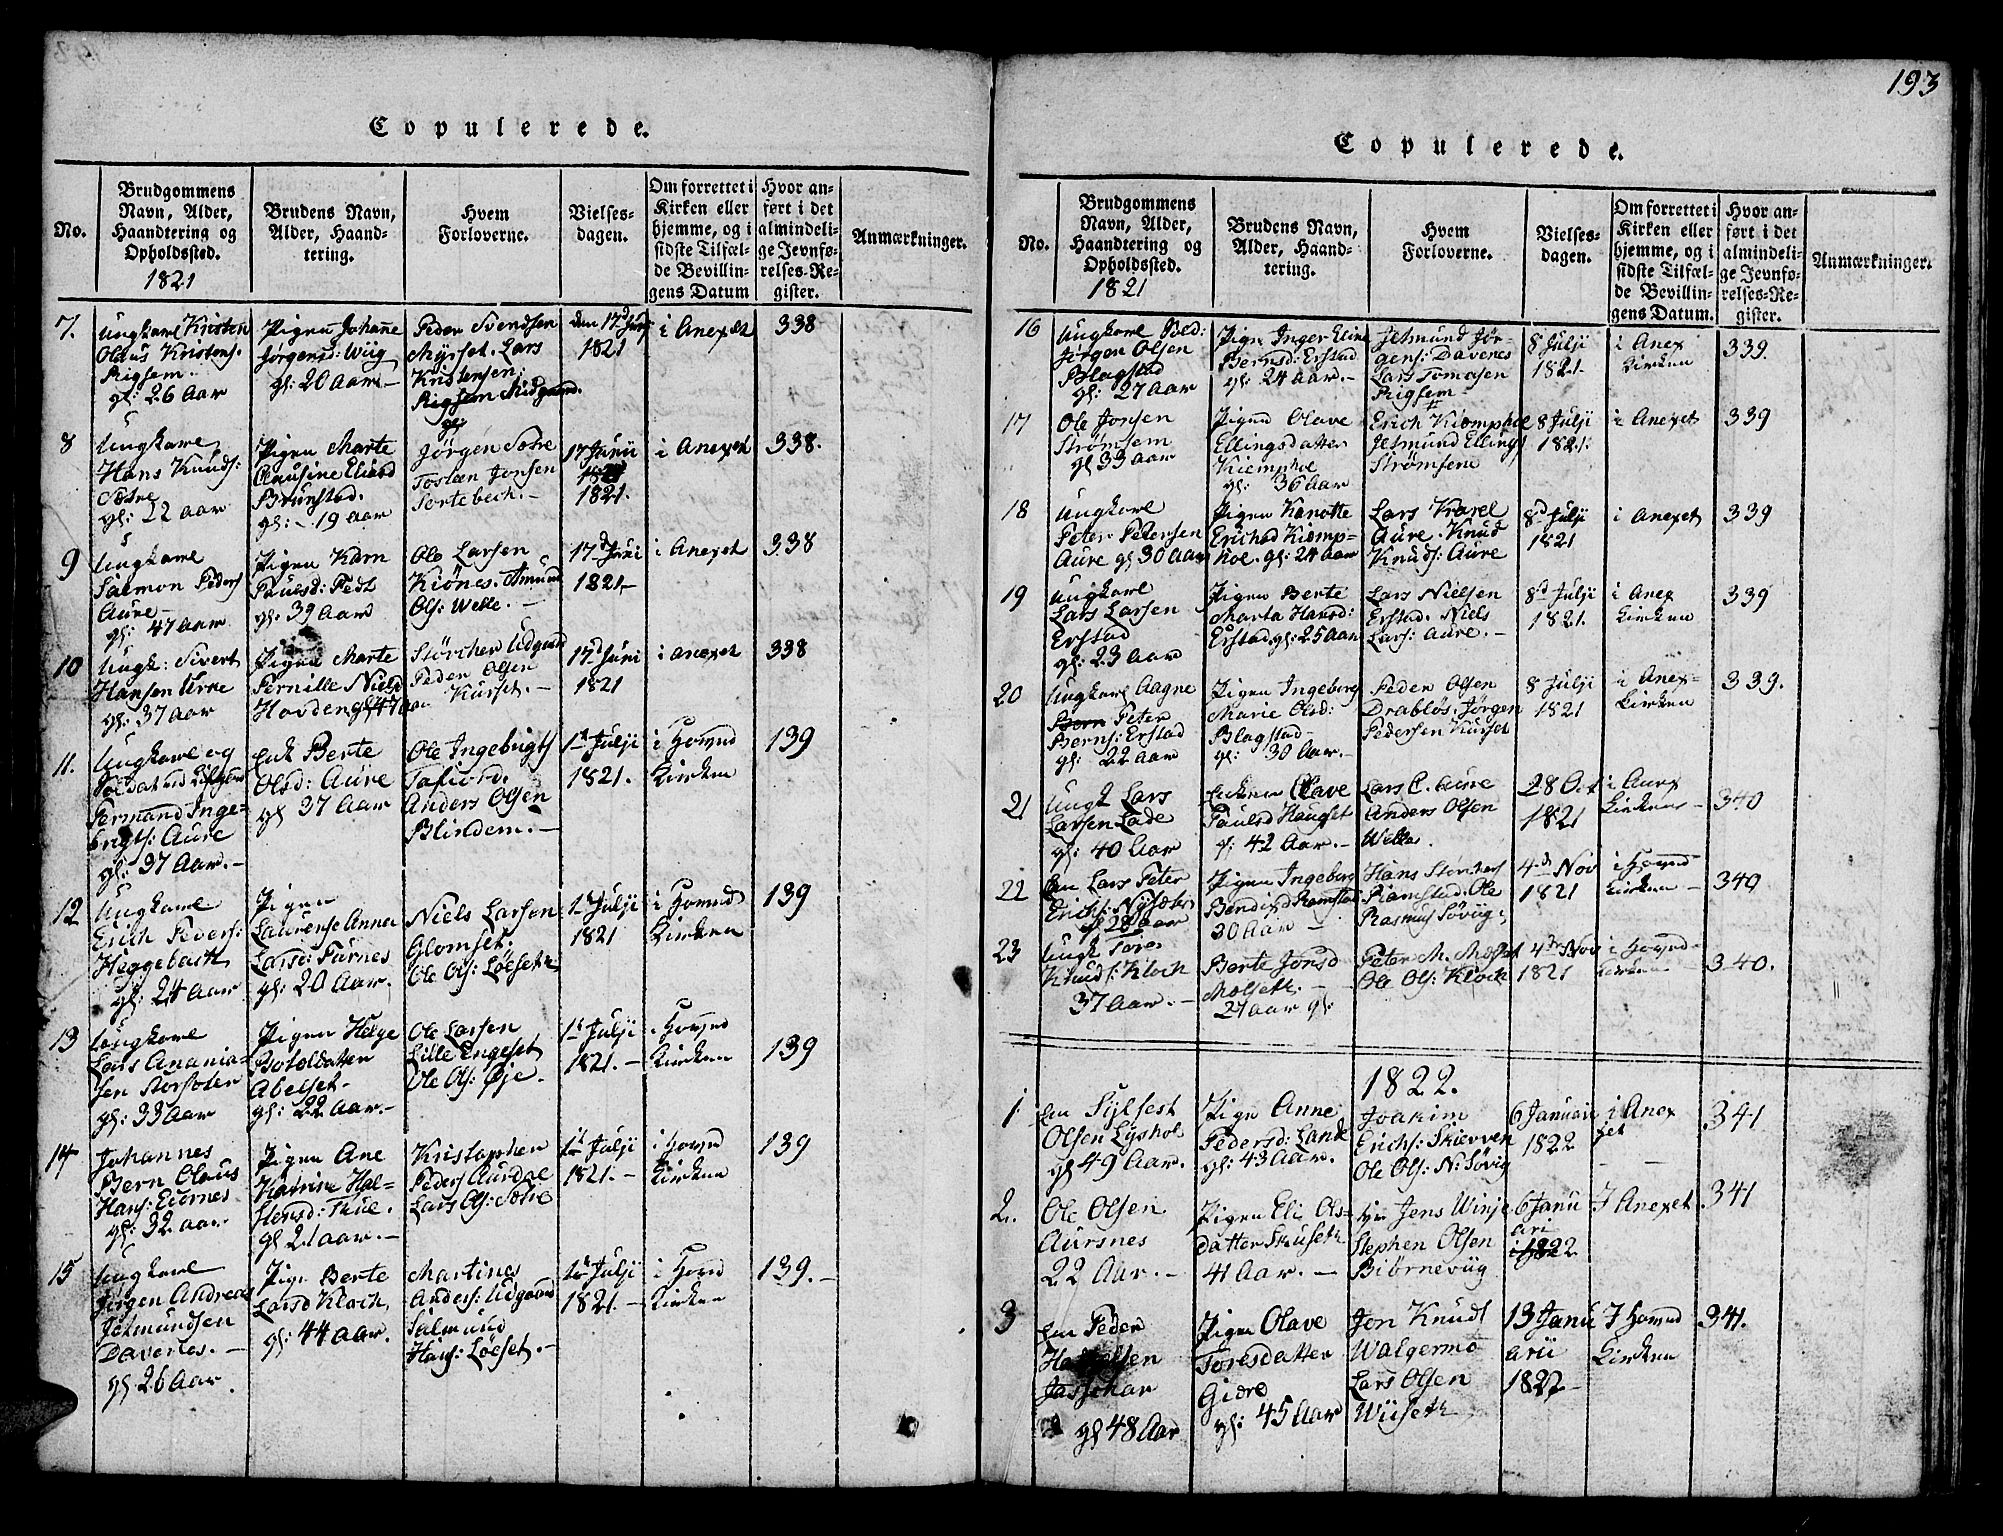 193
Copulerede.
No.
Brudgommens
Navn, Alder,
Haandtering og
Opholdssted.
1821
Brudens Navn,
Alder, Haand-
tering.
Hvem
Forloverne.
Vielses-
dagen.
Om forrettet i
Kirken eller
hjemme, og i
sidste Tilfæl-
de Bevillin-
gens Datum
Hvor an-
ført i det
almindeli-
ge Jevnfø-
relses-Re-
gister.
Anmærkninger.
7.
Ungkarl Kristen
Olaus Kristens.
Rigsem.
gl: 26 Aar
Pigen Johanne
Jørgensd: Wiig
gl: 20 Aar –
Peder Svendsen
Myrset. Lars
Kristensen:
Rigsem
den 17d Juni
1821
i Anexet
338
8
Ungkarl
Hans Knuds:
Sætre
gl: 22 aar
Pigen Marte
Clausine
Brunstad.
gl: 19 aar
Jörgen Sætre
Tosten Jonsen
Sortebech. –
17 Junii
1821.
i Anexet
338.
9
Ungkarl
Salmon Peders
Aure –
gl: 47 aar
Pigen Karn
Paulsd: Fedt
gl: 39 Aar
Ole Larsen
Kiönes. Amund
Ols: Welle. –
17d Juni
1821 –
i Anexet
338
10
Ungk: Sivert
Hansen Urne
gl: 37 Aar
Pigen Marte
Pernille Niels
Hovden gl 47 aar
Störcher Udgaard
Peder Olsen
Kurset. –
17d Juni
1821
i anexet
338
11.
Ungkarl og
Soldat
Fermand Inge-
brigts: Aure
gl: 37 Aar. –
Enk Berte
Olsd: Aure
gl 37 Aar
Ole Ingebrigts
Tafiord.
Anders Olsen
Blindem. –
1st Julji
1821.
i Hovud
Kirken
139
12
Ungkarl
Erich Peders:
Heggebach
gl: 24 aar
Pigen
Laurense Anna
Larsd: Furnes
gl: 20 Aar.
Niels Larsen
Glomset.
Ole Ols: Löeseth
1st Julji
1821
i Hovud
Kirken
139
13
Ungkarl
Lars Anania-
sen Storsoler
gl: 33 Aar
Pigen Helge
Botoldatter
Abelset –
gl: 22 Aar. –
Ole Larsen
Lille Engeset
Ole Ols: Øje.
1st Julji
1821. –
i Hovud
Kirken
139
14
Johannes
Bern Olaus
Hans: Eidernes
gl: 32 aar
Pigen Ane
Katrine Hal-
stensd: Skue.
gl 21 aar. –
Kristopher
Peders Aurdal
Lars Ols: Sætre
1st Julji
1821. –
i Hovud
Kirken
139
15
Ungkarl
Jörgen Andreas
Jetmundsen
Davenes. –
gl 26 Aar
Pigen Berte
Larsd Kloch
gl: 44 aar.
Martines
Anders: Udgaard
Salmund
Hans: Löeset. –
1st Julji
1821. –
i Hovd
Kirken
139. –
Copulerede.
No.
Brudgommens
Navn, Alder,
Haandtering og
Opholdssted.
1821
Brudens Navn,
Alder, Haand-
tering.
Hvem
Forloverne.
Vielses-
dagen.
Om forrettet i
Kirken eller
hjemme, og i
sidste Tilfæl-
de Bevillin-
gens Datum.
Hvor an-
ført i det
almindeli-
ge Jevnfø-
relses-Re-
gister.
Anmærkninger.
16
Ungkarl Sold:
Jörgen Olsen
Blagstad
gl: 27 aar
Pigen Inger Eline
Bernsd: Erstad
gl: 24 aar. –
Jetmund Jör-
gens: Davenes
Lars Tomasen
Rigsem –
8 Julji
1821 –
i Anex
Kirken
339.
17
Ole Jonsen
Strømsem
gl 33 aar
Pigen Olave
Ellingsdatter
Kiemphol
gl: 36 aar
Erich Kiemphol
Jetmund Ellings
Strømsem
8 Julji
1821.
i Anexet
339
18
Ungkarl
Peter Petersen
Aure gl 30 aar
Pigen Kanutte
Erichsd Kiemp-
hol. gl: 24 aar
Lars Karel
Aure. Knud
Knuds: Aure
8d Julji
1821
i Anexet
339
19
Ungkarl
Lars Larsen
Erstad
gl: 23 Aar
Pigen Berte
Marta Hansd:
Erstad, gl: 25 aar
Lars Nielsen
Erstad. Niels
Lars: Aure. –
8d Julji
1821.
i Anex
Kirken
339
20
Ungkarl Aagne
Peter
Berns: Erstad
gl: 22 aar
Pigen Ingeborg
Marie Olsd:
Blagstad –
gl: 30 Aar. –
Peder Olsen
Drabløs. Jörgen
Pedersen Kurset
8 Julji
1821
i Anex-
Kirken
339.
21
Ungk Lars
Larsen Lade
gl: 40 Aar
Enken Olave
Paulsd Hauset
gl: 42 Aar. –
Lars C. Aure
Anders Olsen
Welle.
28 Oct
1821
i Anex
Kirken –
340
22
Em Lars Peter
Erichs: Nysæter
gl 28 aar
Pigen Ingeborg
Bendixd Ramstad
30 Aar –
Hans Störchers
Ramstad. Ole
Rasmus Søviig,
4de Nov
1821
i Hovud
Kirken –
340
23
Ungk Tore
Knuds: Kloch
37 Aar. –
Berte Jonsd
Molseth. –
27 aar gl:
Peter M. Molset
Ole Ols: Kloch
4de Nov
1821
i Hovud-
Kirken –
340.
1822.
1
Em Sylfest
Olsen Lyshol
gl 49 Aar.
Pigen Anne
Pedersd: Lande
gl: 43 Aar.
Joakim
Erichs: Skierven
Ole Ols: N: Søvig
6 Januari
1822
i Anex
et
341
2.
Ole Olsen
Aursnes
22 Aar. –
Pigen Eli Ols-
datter Skuseth
41 Aar. –
Jens Winje
Stephen Olsen
Biørneviig
6 Janu
ari
1822
I Anexet
341
3
Em Peder
gl 48 Aar
Pigen Olave
Toresdatter
Giære
gl: 45 Aar
Jon Knuds
Walgermo
Lars Olsen
Wiiseth
13 Janu
arii
1822 –
I Hovud
Kirken
341.